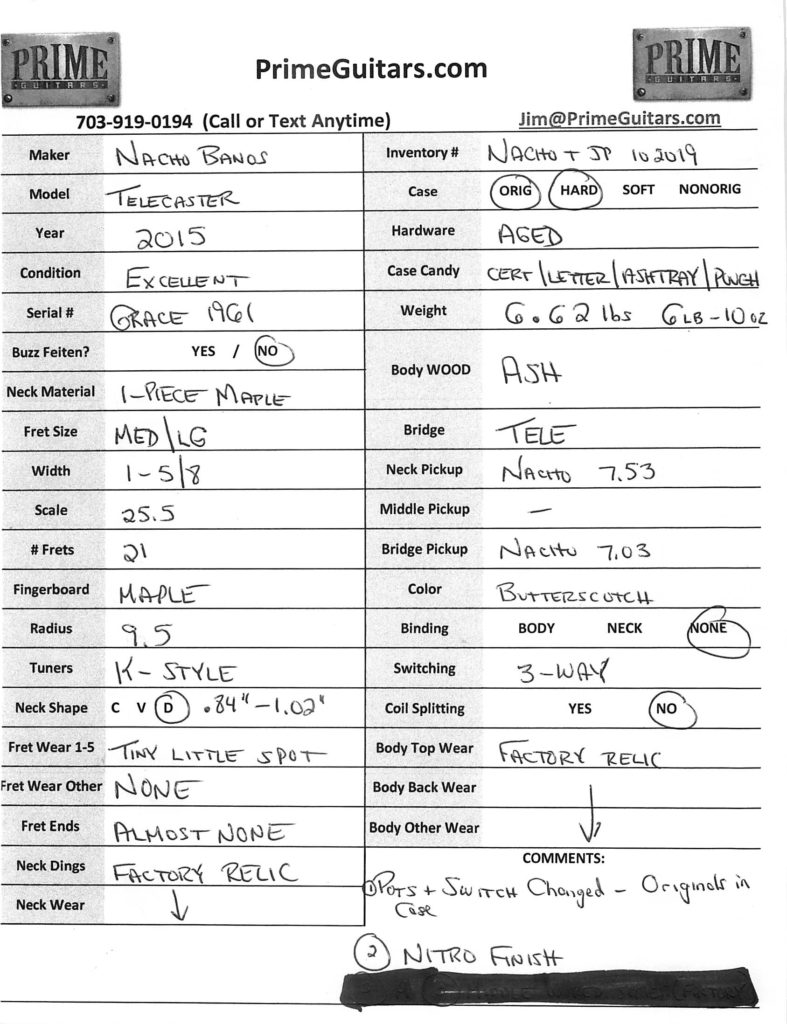 PRIME
GUITARS
PrimeGuitars.com
PRIME
GUITARS
703-919-0194 (Call or Text Anytime)
Jim@PrimeGuitars.com
Maker NACHO BANOS
Inventory # NACHO + JP 102019
Model TELECASTER
Case ORIG HARD SOFT NONORIG
Year 2015
Hardware AGED
Condition EXCELLENT
Case Candy CERT/LETTER/ASHTRAY/POUCH
Serial # GRACE 1961
Weight 6.62 lbs 6LB-10oz
Buzz Feiten? YES / NO
Body WOOD ASH
Neck Material 1-PIECE MAPLE
Fret Size MED/LG
Bridge TELE
Width 1-5/8
Neck Pickup NACHO 7.53
Scale 25.5
Middle Pickup —
# Frets 21
Bridge Pickup NACHO 7.03
Fingerboard MAPLE
Color BUTTERSCOTCH
Radius 9.5
Binding BODY NECK NONE
Tuners K-STYLE
Switching 3-WAY
Neck Shape C V D .84"-1.02"
Coil Splitting YES NO
Fret Wear 1-5 TINY LITTLE SPOT
Body Top Wear FACTORY RELIC
Fret Wear Other NONE
Body Back Wear
Fret Ends ALMOST NONE
Body Other Wear
Neck Dings FACTORY RELIC
Neck Wear
COMMENTS:
① POTS + SWITCH Changed - Originals in
Case
② NITRO FINISH